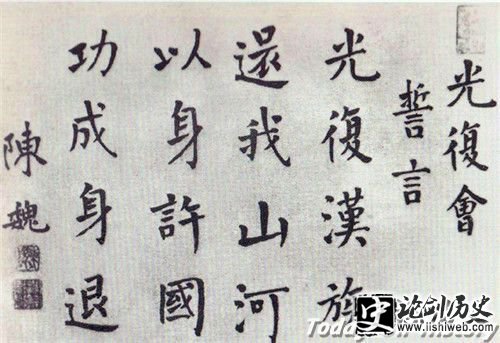 光復會
誓言
光復漢族
還我山河
以身許國
功成身退
陳魏
論劍歷史
www.lishiweb.com
Today in History